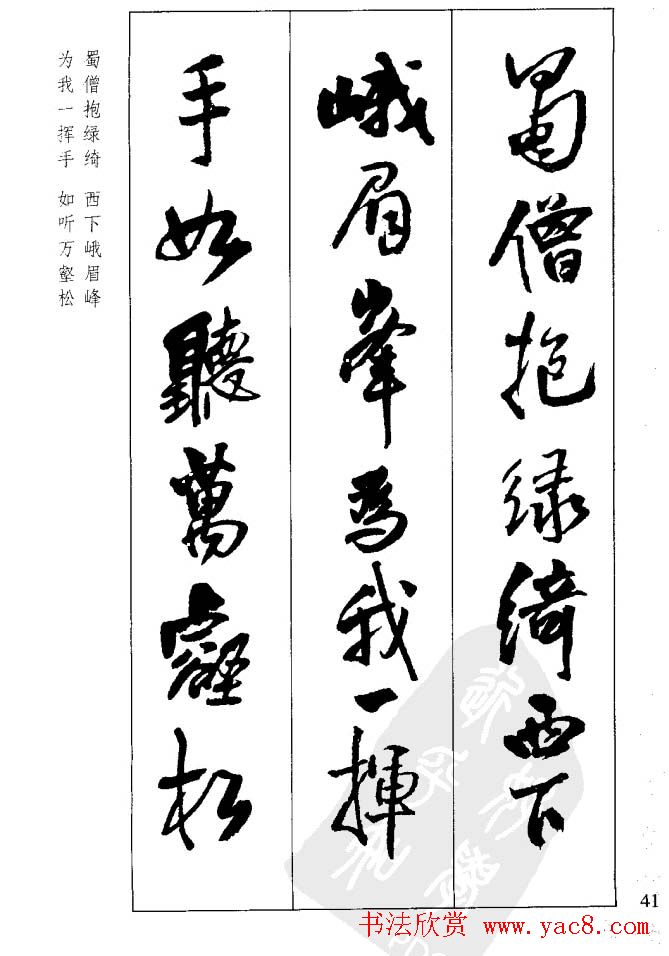 蜀僧抱绿綺西下
峨眉峯為我一揮
手如聽萬壑松
蜀僧抱绿绮 西下峨眉峰
为我一挥手 如听万壑松
41
书法欣赏 www.yac8.com